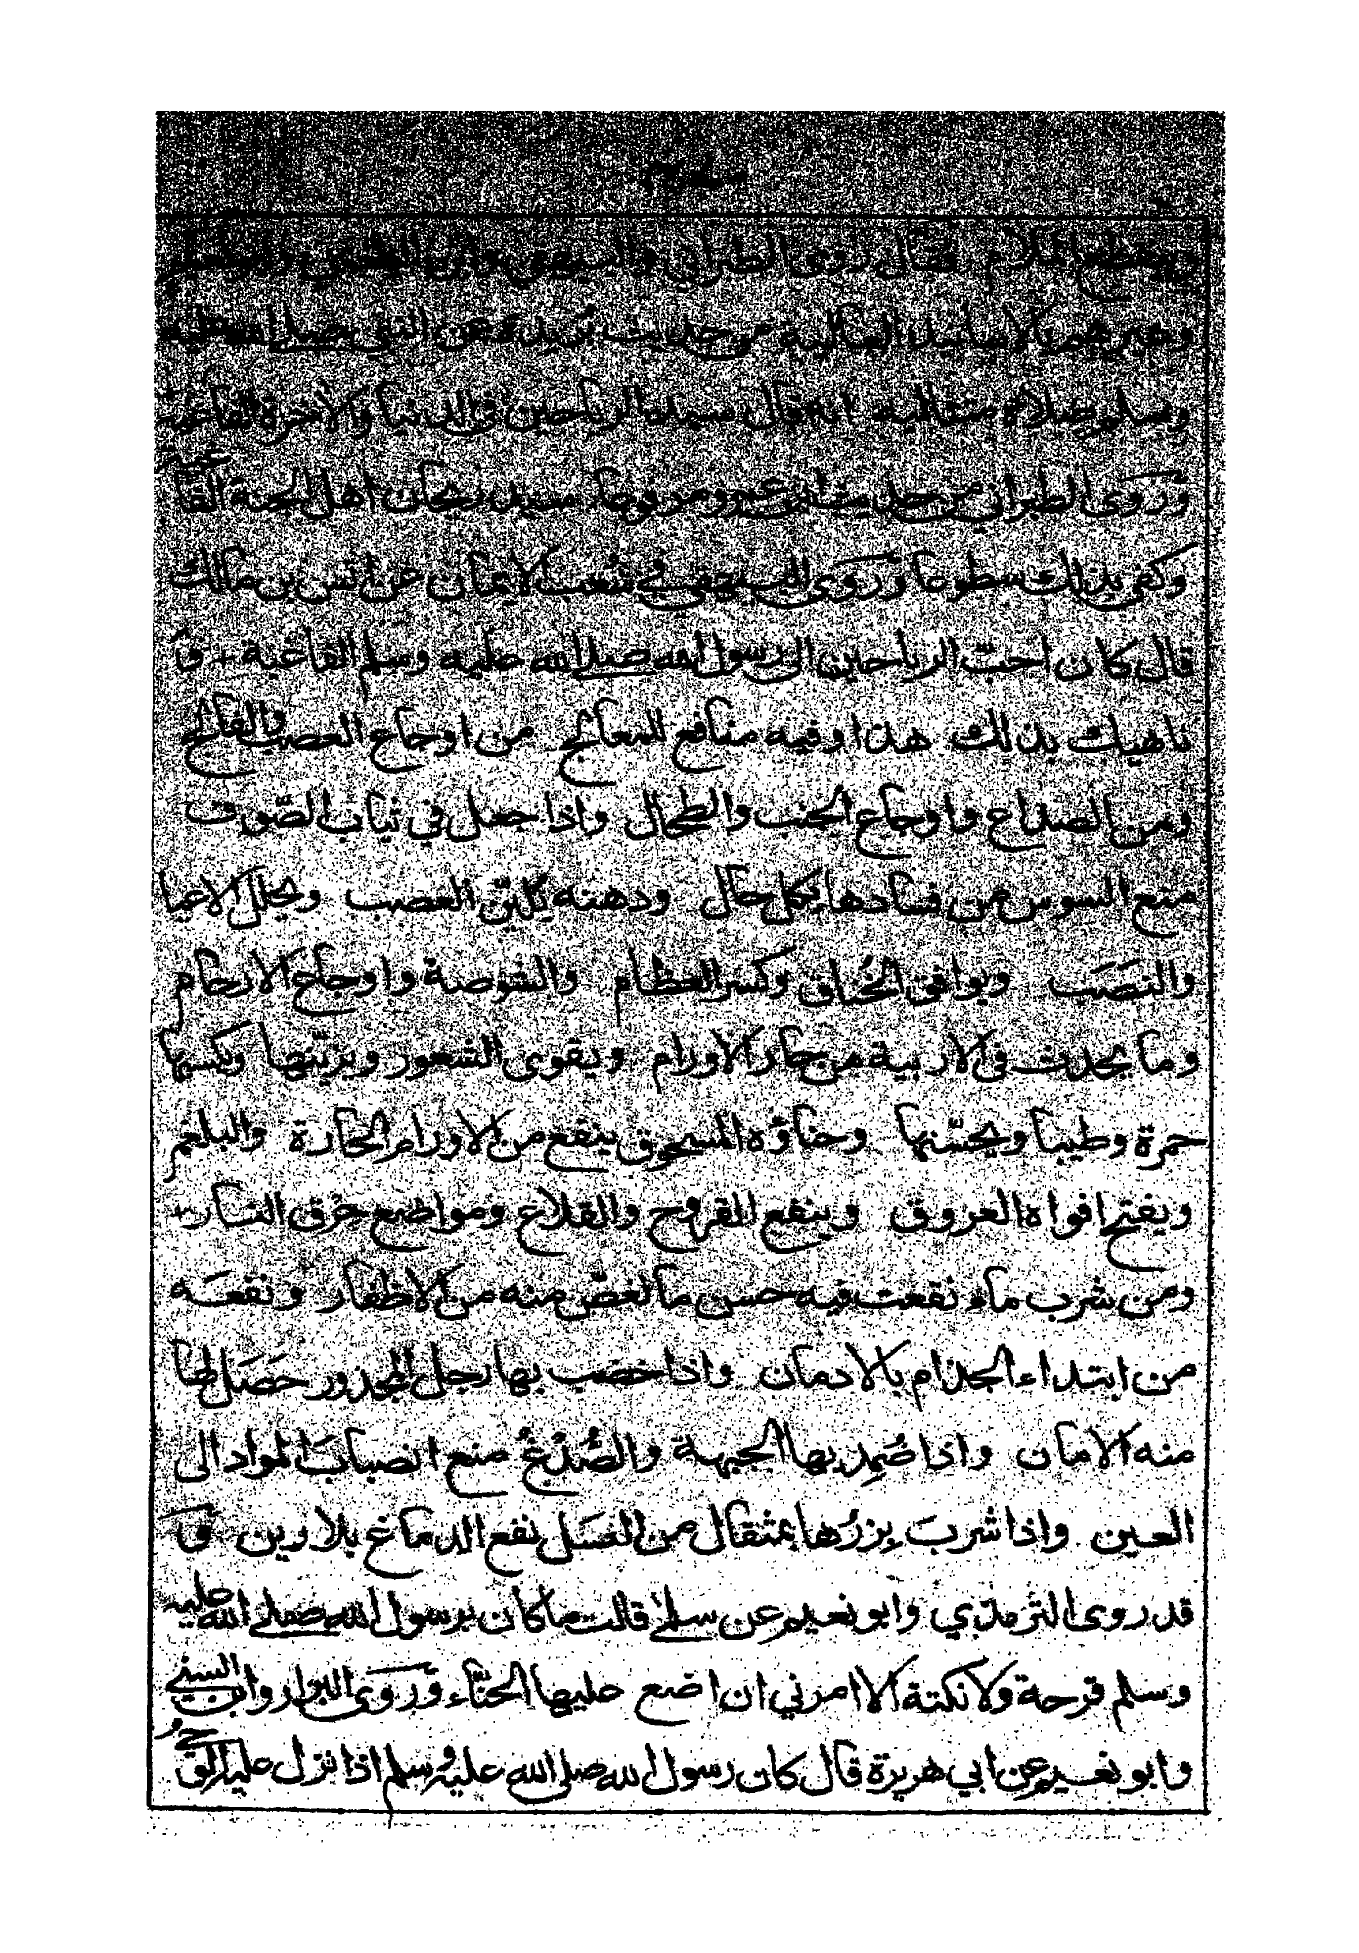 فقال روى الطبراني والبيهقي وابن
وغيرهم بالاسانيد العالية من حديث بريدة عن النبي صلى الله عليه
وسلم صلاة متتالية انه قال سيد الرياحين في الدنيا والاخرة الفاغية
وروى الطبراني من حديث ابن عمرو مرفوعا سيد ريحان اهل الجنة الفاغية
وكفى بذلك سطوعا وروى البيهقي في شعب الايمان عن انس بن مالك
قال كان احبّ الرياحين الى رسول الله صلى الله عليه وسلم الفاغية فا
ناهيك بذلك هذا وفيه منافع للمعالج من اوجاع العصب والفالج
ومن الصداع واوجاع الجنب والطحال واذا جعل في ثياب الصّوف
منع السوس من فسادها بكل حال ودهنه يليّن العصب ويحلل الاعيا
والنصَب ويوافق الخُناق وكسر العظام والشوصة واوجاع الارحام
وما يحدث في الاربية من حار الاورام ويقوى الشعور ويزيّنها ويكسبها
حمرة وطيبا ويحسّنها وحناؤه المسحوق ينفع من الاورام الحارة والبلغم
ويفتح افواه العروق وينفع القروح والقلاع ومواضع حرق النار
ومن شرب ماء نقعت فيه حسن ما لغصّ منه من الاظفار ونفعَه
من ابتداء الجذام بالادمان واذا خضب بها رجل المجدور حصَل لها
منه الامان واذا ضُمِد بها الجبهة والصُدْغ منع انصبابَ المواد الى
العين واذا شربَ بِزرُها بمثقال من العسَل نفع الدماغ بلا رين وَ
قد روى الترمذي وابو نعيم عن سلمى قالت ما كان برسول الله صلى الله عليه
وسلم قرحة ولا نكتة الا امرني ان اضع عليها الحنّاء وروى البزار وابن السني
وابو نعيم عن ابي هريرة قال كان رسول الله صلى الله عليه وسلم اذا نزل عليه الوحي